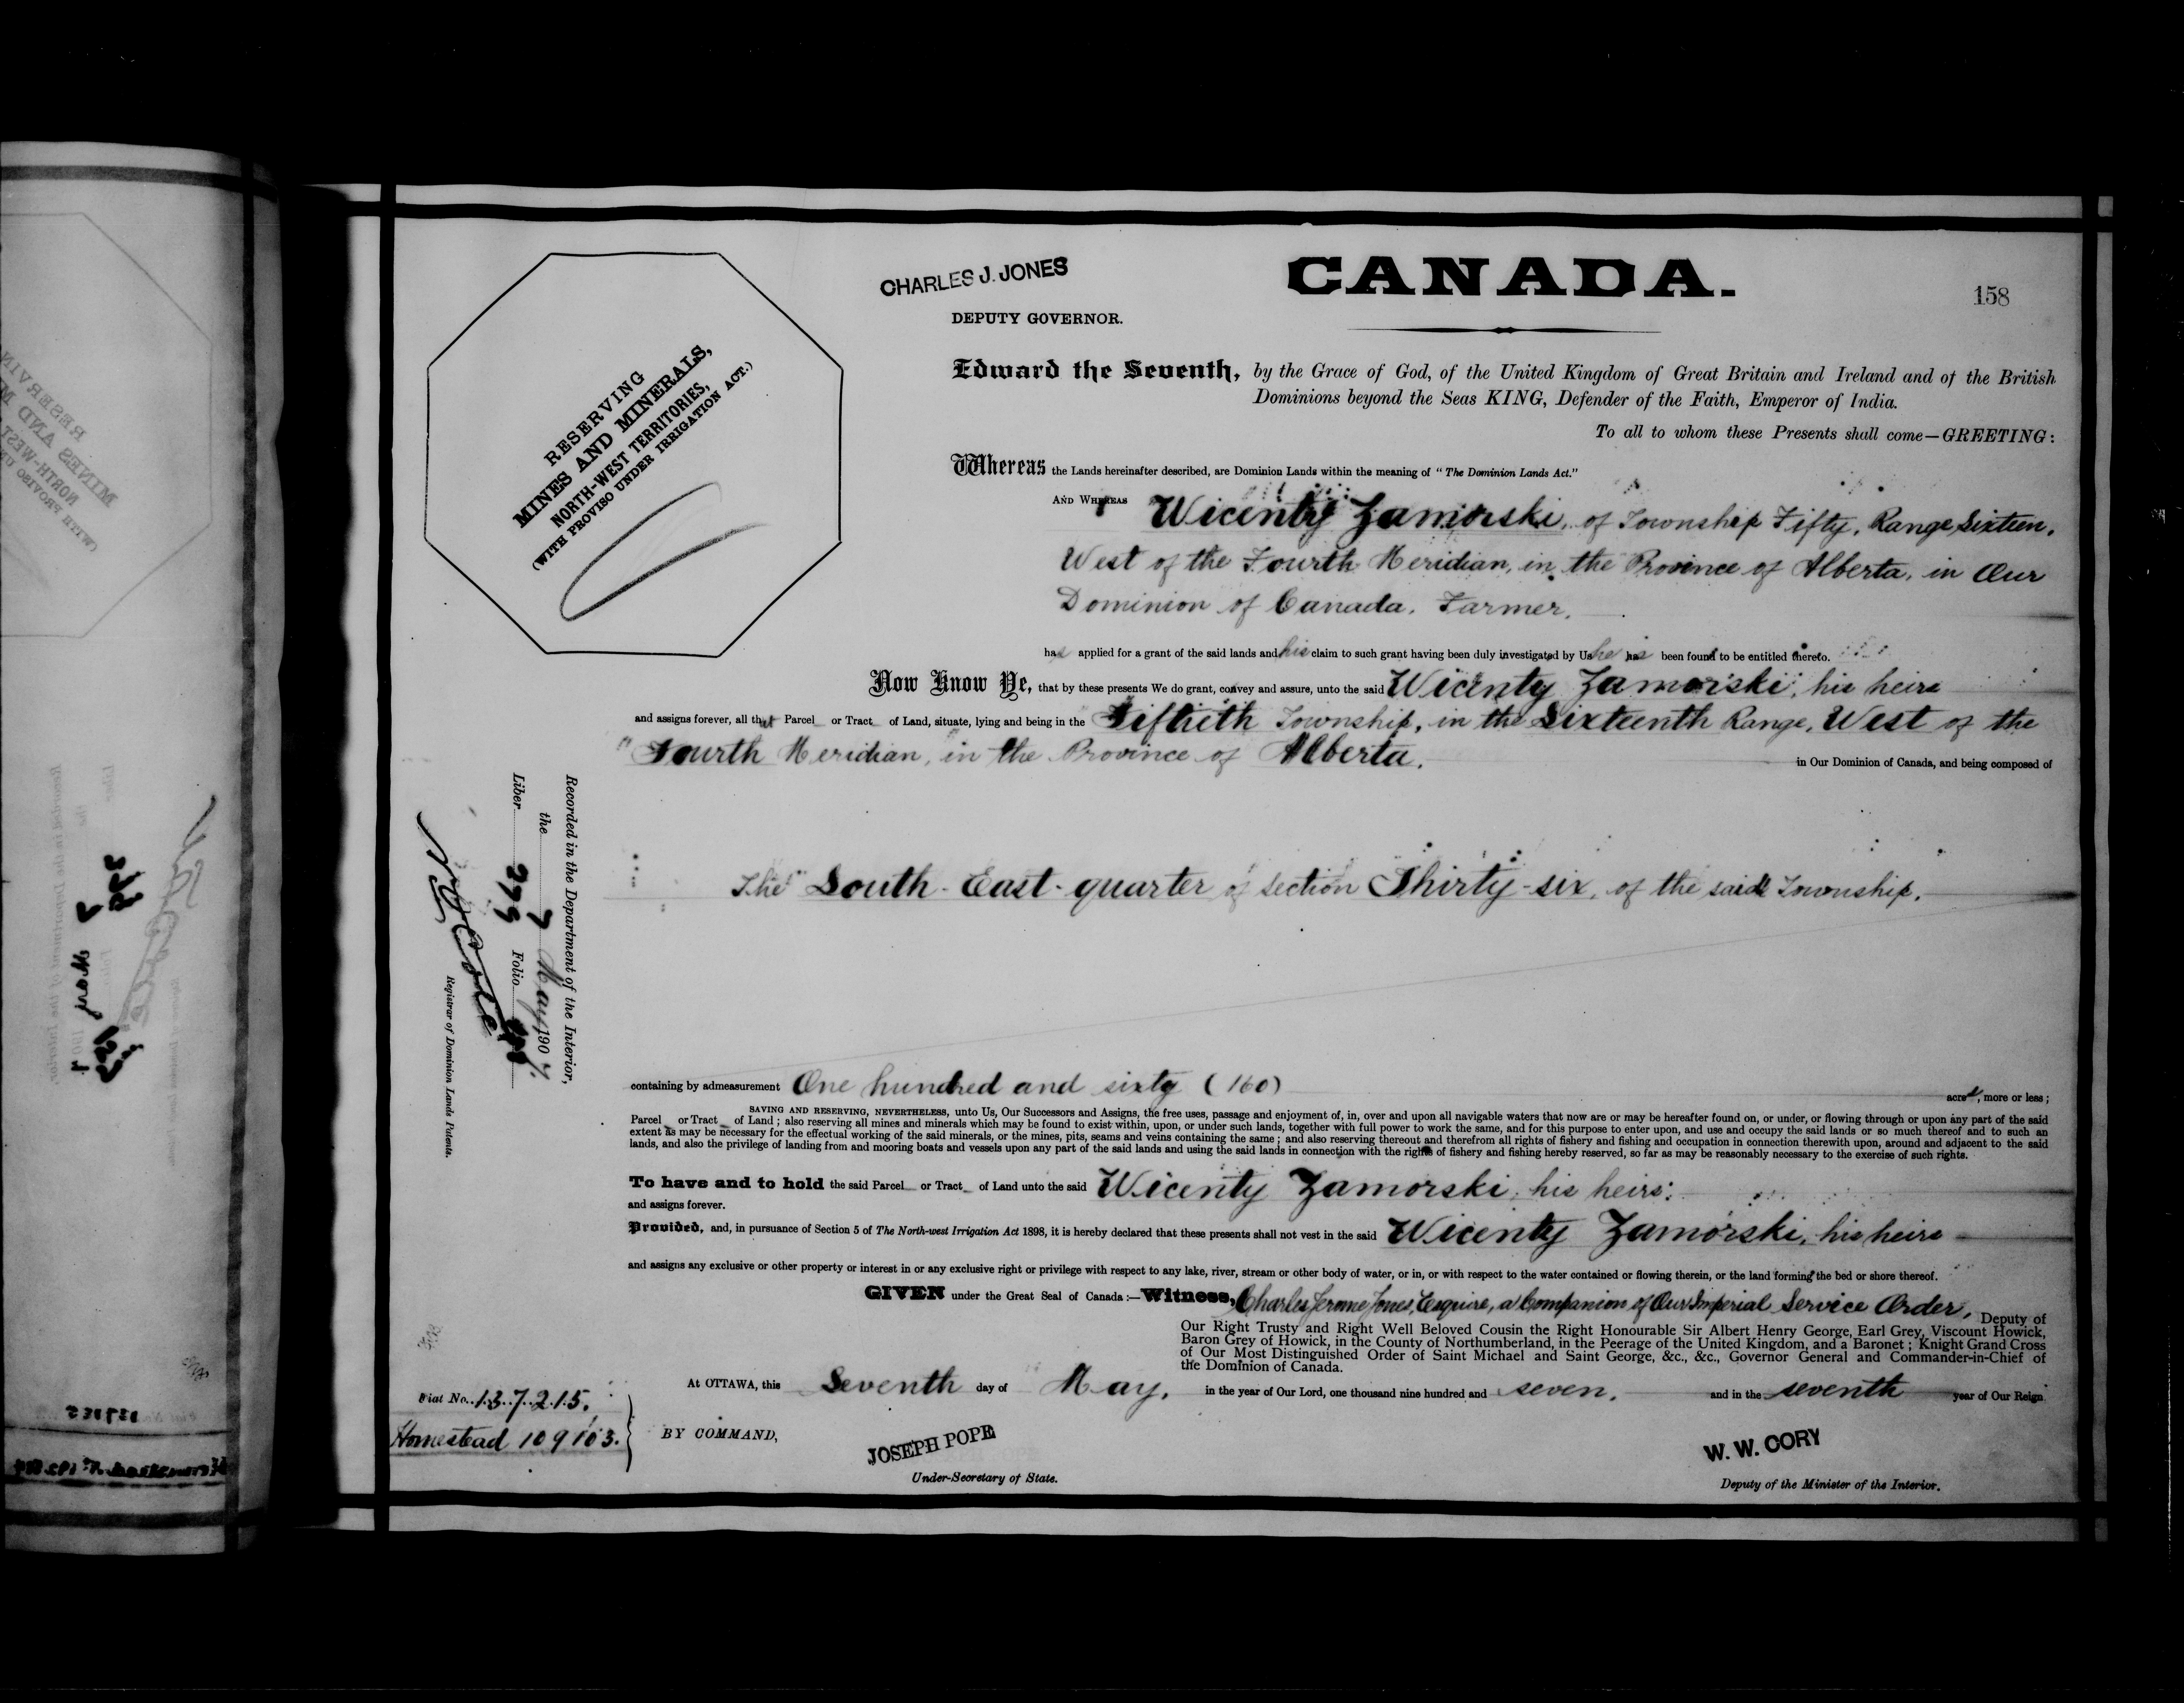 CHARLES J. JONES
DEPUTY GOVERNOR.
CANADA.
158
RESERVING
MINES AND MINERALS,
NORTH-WEST TERRITORIES,
(WITH PROVISO UNDER IRRIGATION ACT.)
Edward the Seventh, by the Grace of God, of the United Kingdom of Great Britain and Ireland and of the British
Dominions beyond the Seas KING, Defender of the Faith, Emperor of India.
To all to whom these Presents shall come—GREETING:
Whereas the Lands hereinafter described, are Dominion Lands within the meaning of "The Dominion Lands Act."
AND WHEREAS Wicenty Zamorski, of Township Fifty, Range Sixteen,
West of the Fourth Meridian, in the Province of Alberta, in Our
Dominion of Canada, Farmer,
has applied for a grant of the said lands and his claim to such grant having been duly investigated by Us he has been found to be entitled thereto.
Now Know Ye, that by these presents We do grant, convey and assure, unto the said Wicenty Zamorski, his heirs
and assigns forever, all that Parcel or Tract of Land, situate, lying and being in the Fiftieth Township, in the Sixteenth Range, West of the
Fourth Meridian, in the Province of Alberta,
in Our Dominion of Canada, and being composed of
The South-East-quarter of Section Thirty-six, of the said Township,
Recorded in the Department of the Interior,
the 7 May 1907.
Liber 279 Folio
Registrar of Dominion Lands Patents.
containing by admeasurement One hundred and sixty (160) acres, more or less;
SAVING AND RESERVING, NEVERTHELESS, unto Us, Our Successors and Assigns, the free uses, passage and enjoyment of, in, over and upon all navigable waters that now are or may be hereafter found on, or under, or flowing through or upon any part of the said
Parcel or Tract of Land; also reserving all mines and minerals which may be found to exist within, upon, or under such lands, together with full power to work the same, and for this purpose to enter upon, and use and occupy the said lands or so much thereof and to such an
extent as may be necessary for the effectual working of the said minerals, or the mines, pits, seams and veins containing the same; and also reserving thereout and therefrom all rights of fishery and fishing and occupation in connection therewith upon, around and adjacent to the said
lands, and also the privilege of landing from and mooring boats and vessels upon any part of the said lands and using the said lands in connection with the rights of fishery and fishing hereby reserved, so far as may be reasonably necessary to the exercise of such rights.
To have and to hold the said Parcel or Tract of Land unto the said Wicenty Zamorski, his heirs
and assigns forever.
Provided, and, in pursuance of Section 5 of The North-west Irrigation Act 1898, it is hereby declared that these presents shall not vest in the said Wicenty Zamorski, his heirs
and assigns any exclusive or other property or interest in or any exclusive right or privilege with respect to any lake, river, stream or other body of water, or in, or with respect to the water contained or flowing therein, or the land forming the bed or shore thereof.
GIVEN under the Great Seal of Canada:—Witness, Charles Jerome Jones, Esquire, a Companion of Our Imperial Service Order, Deputy of
Our Right Trusty and Right Well Beloved Cousin the Right Honourable Sir Albert Henry George, Earl Grey, Viscount Howick,
Baron Grey of Howick, in the County of Northumberland, in the Peerage of the United Kingdom, and a Baronet; Knight Grand Cross
of Our Most Distinguished Order of Saint Michael and Saint George, &c., &c., Governor General and Commander-in-Chief of
the Dominion of Canada.
At OTTAWA, this Seventh day of May, in the year of Our Lord, one thousand nine hundred and seven, and in the seventh year of Our Reign
Fiat No. 137215.
Homestead 109103.
BY COMMAND,
JOSEPH POPE
Under-Secretary of State.
W. W. CORY
Deputy of the Minister of the Interior.